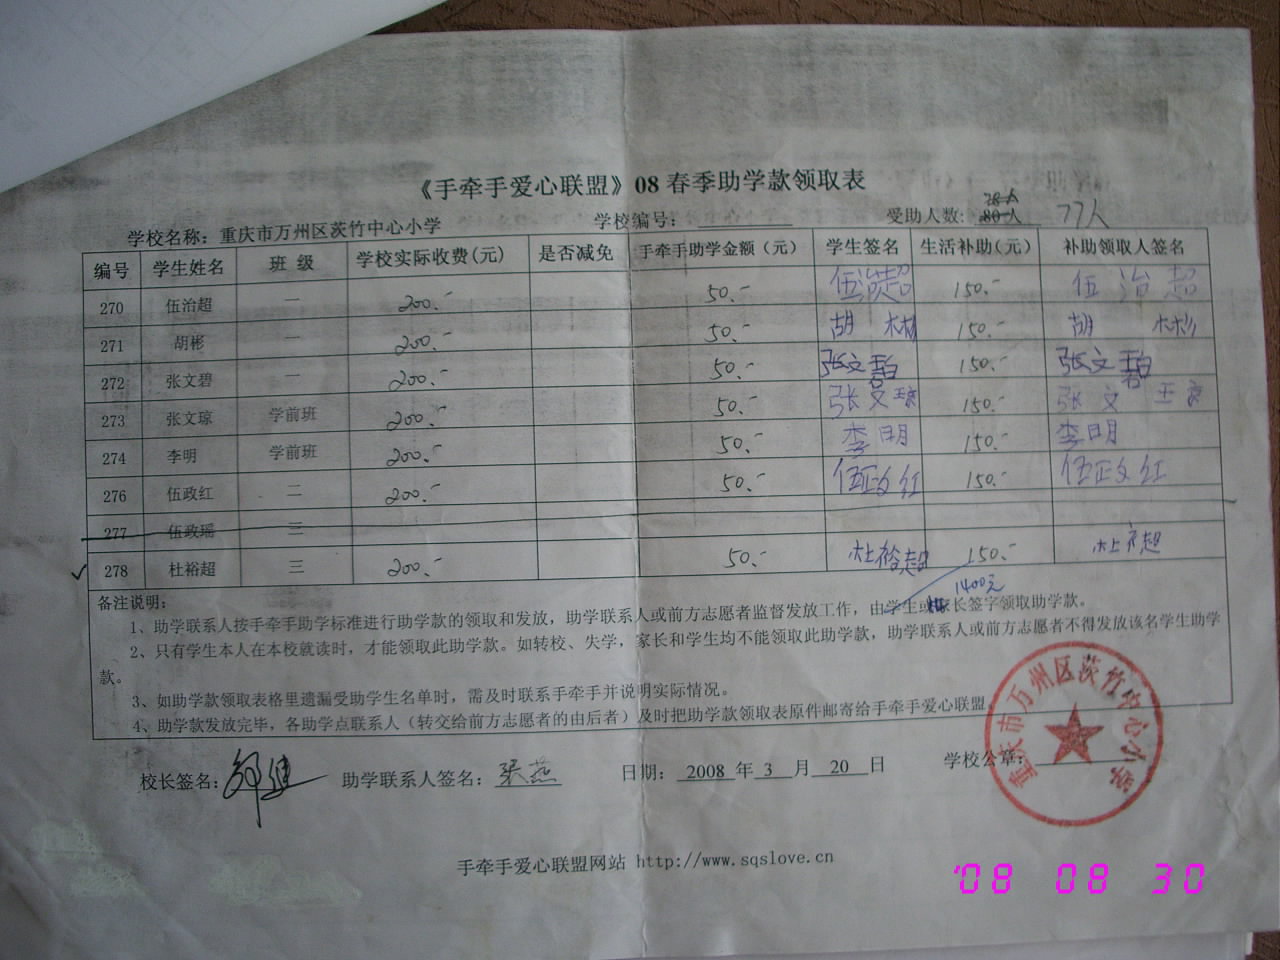 《手牵手爱心联盟》08 春季助学款领取表
学校名称：重庆市万州区茨竹中心小学 学校编号： 受助人数: 80人 78人 77人
编号 学生姓名 班 级 学校实际收费(元) 是否减免 手牵手助学金额（元） 学生签名 生活补助(元) 补助领取人签名
270 伍治超 一 200.- 50.- 伍治超 150.- 伍治超
271 胡彬 一 200.- 50.- 胡彬 150.- 胡彬
272 张文碧 一 200.- 50.- 张文碧 150.- 张文碧
273 张文琼 学前班 200.- 50.- 张文琼 150.- 张文琼
274 李明 学前班 200.- 50.- 李明 150.- 李明
276 伍政红 二 200.- 50.- 伍政红 150.- 伍政红
277 伍政瑶 三
278 杜裕超 三 200.- 50.- 杜裕超 150.- 杜裕超
1400元
备注说明：
1、助学联系人按手牵手助学标准进行助学款的领取和发放，助学联系人或前方志愿者监督发放工作，由学生或家长签字领取助学款。
2、只有学生本人在本校就读时，才能领取此助学款。如转校、失学，家长和学生均不能领取此助学款，助学联系人或前方志愿者不得发放该名学生助学
款。
3、如助学款领取表格里遗漏受助学生名单时，需及时联系手牵手并说明实际情况。
4、助学款发放完毕，各助学点联系人（转交给前方志愿者的由后者）及时把助学款领取表原件邮寄给手牵手爱心联盟。
校长签名： 助学联系人签名： 日期： 2008 年 3 月 20 日 学校公章：
重庆市万州区茨竹中心小学
手牵手爱心联盟网站 http://www.sqslove.cn
'08 08 30